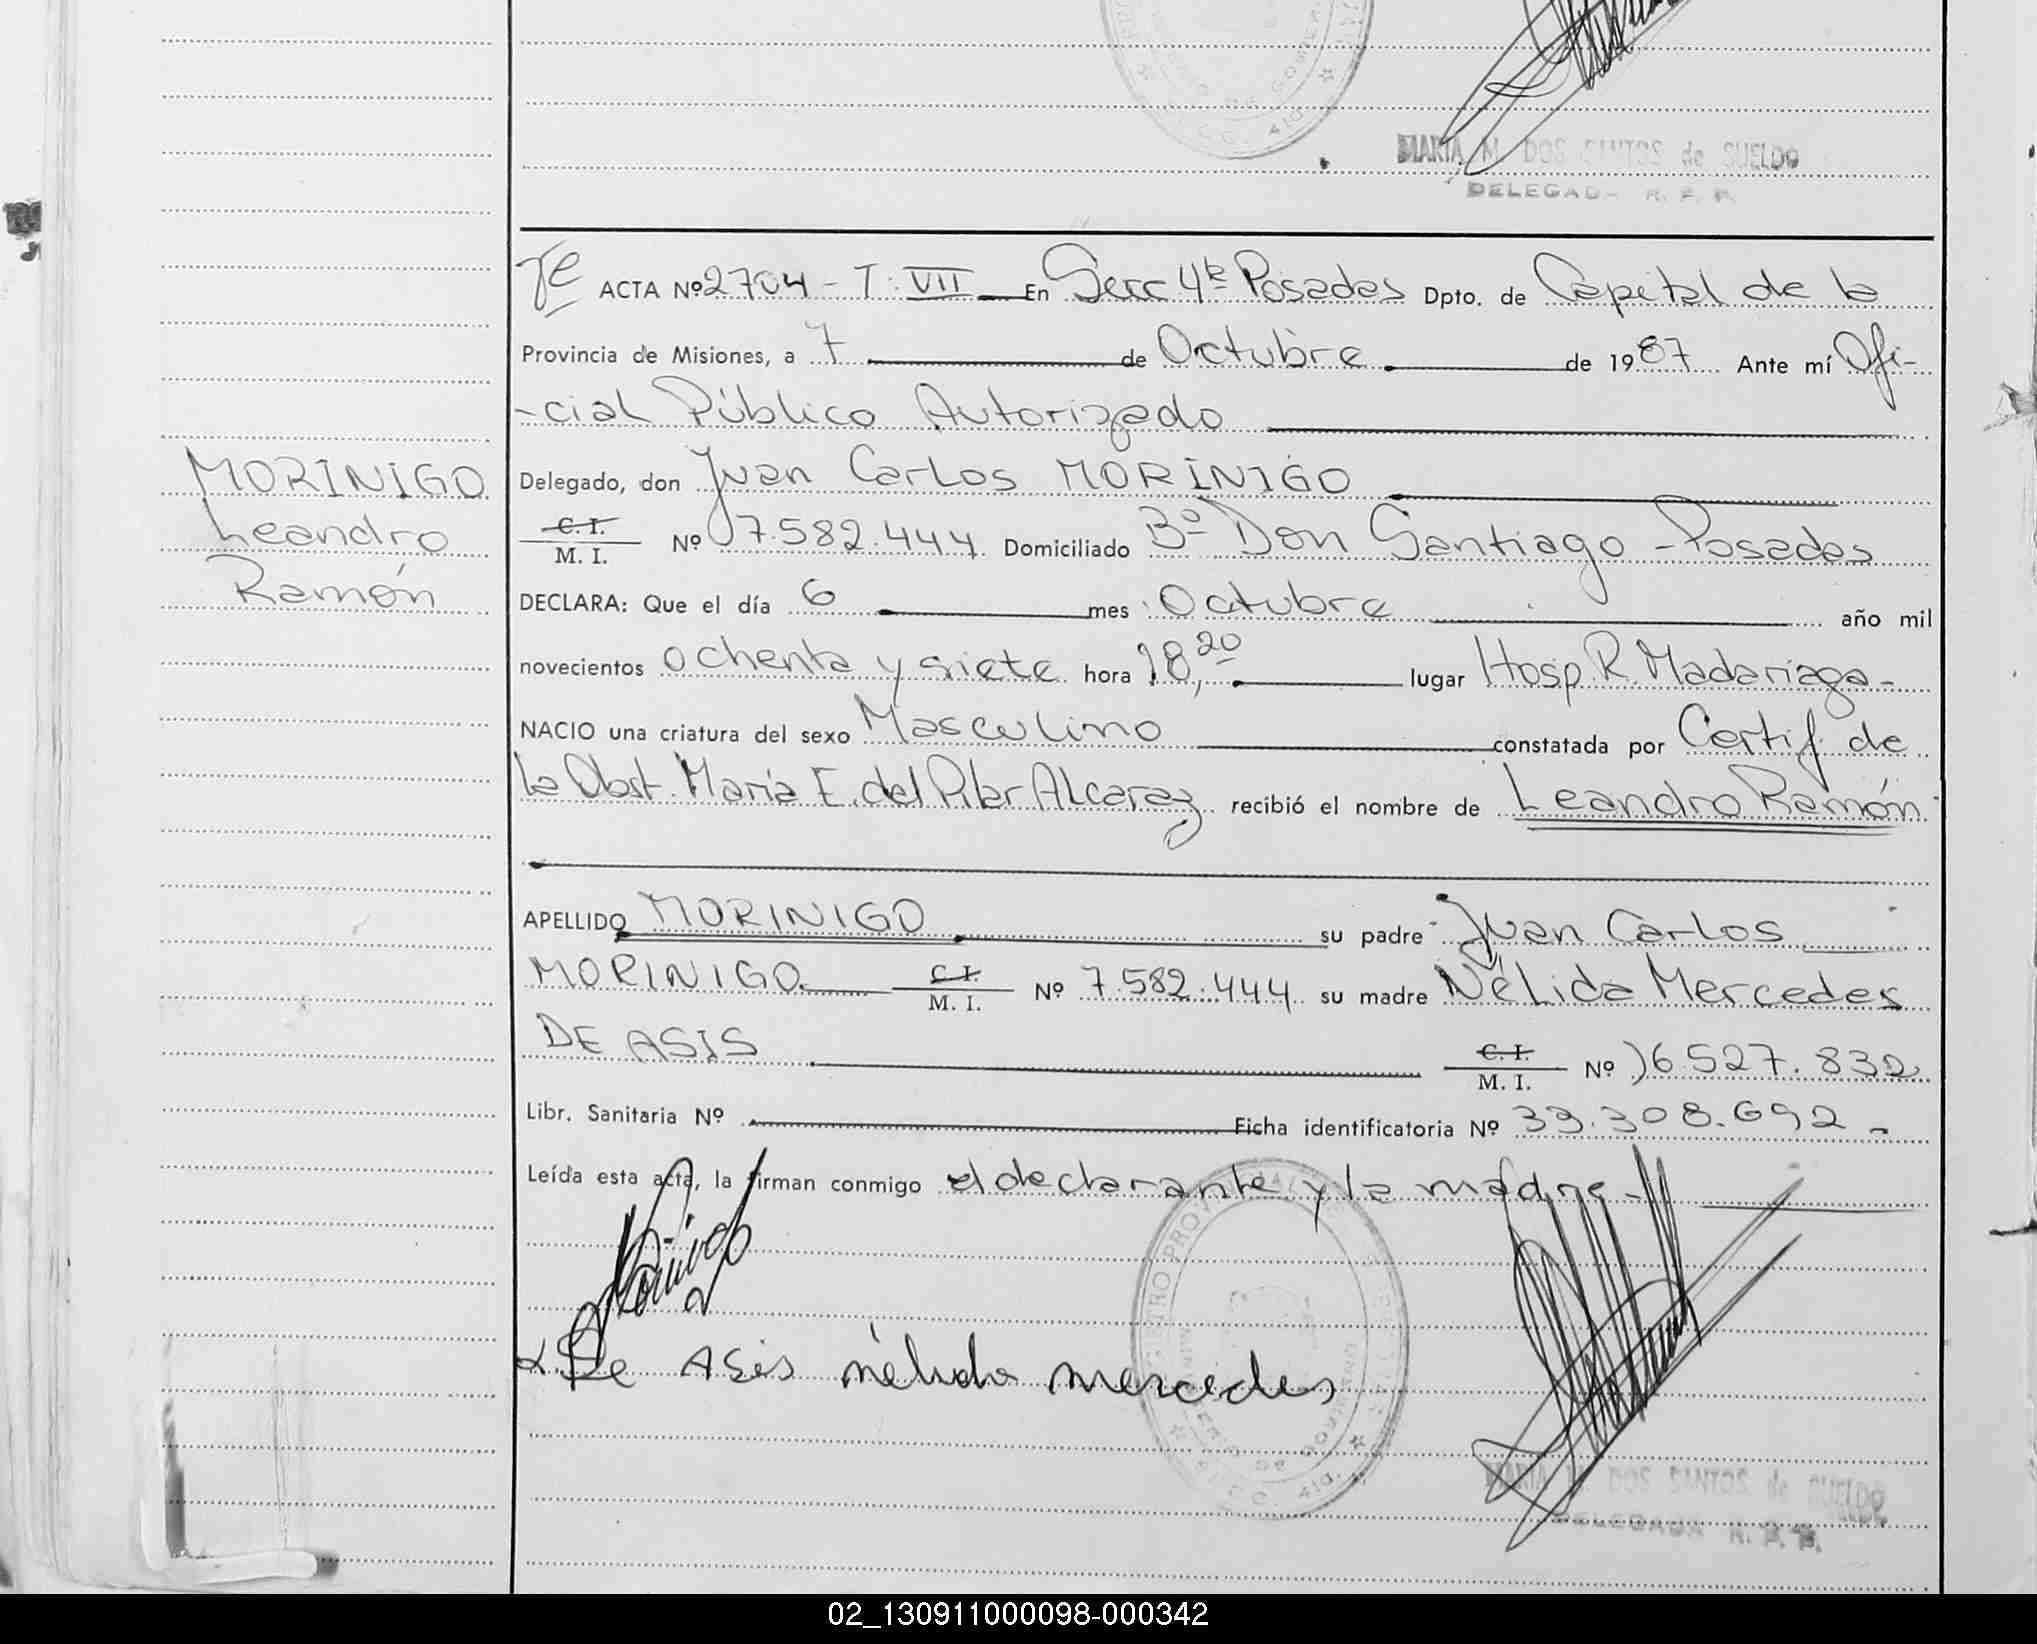 MARIA M. DOS SANTOS de SUELDO
DELEGADA R. P. P.
ACTA Nº 2704 - T: VII En Secc 4ta Posadas Dpto. de Capital de la
Provincia de Misiones, a 7 de Octubre de 1987 Ante mí Ofi-
-cial Público Autorizado
MORINIGO
Leandro
Ramón
Delegado, don Juan Carlos MORINIGO
C. I.
M. I. Nº 07.582.444 Domiciliado Bº Don Santiago - Posadas
DECLARA: Que el día 6 mes Octubre año mil
novecientos ochenta y siete hora 18,20 lugar Hosp. R. Madariaga-
NACIO una criatura del sexo Masculino constatada por Certif. de
la Obst. María E. del Pilar Alcaraz recibió el nombre de Leandro Ramón
APELLIDO MORINIGO su padre Juan Carlos
MORINIGO. C. I.
M. I. Nº 7.582.444 su madre Nélida Mercedes
DE ASIS C. I.
M. I. Nº 16.527.832
Libr. Sanitaria Nº Ficha identificatoria Nº 33.308.692.-
Leída esta acta, la firman conmigo el declarante y la madre-
Morinigo
De Asis nélida mercedes
DOS SANTOS de SUELDO
DELEGADA R. P. P.
02_130911000098-000342